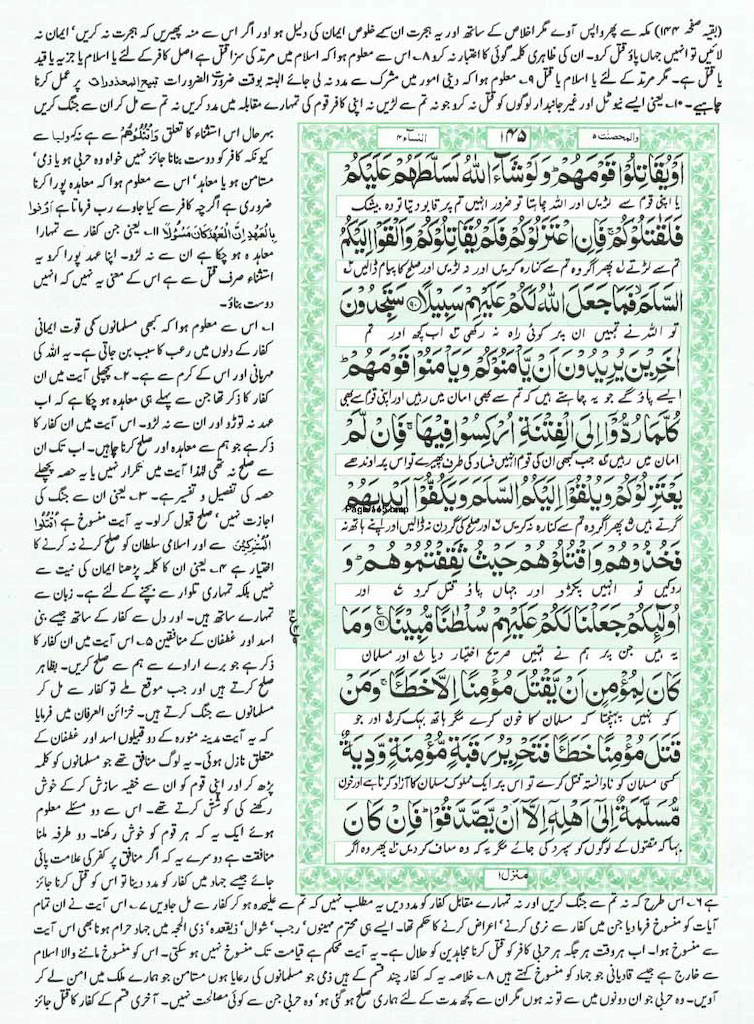 (بقیہ صفحہ ۱۴۴) مکہ سے پھر واپس آوے مگر اخلاص کے ساتھ اور یہ ہجرت ان کے خلوص ایمان کی دلیل ہو اور اگر اس سے منہ پھیریں کہ ہجرت نہ کریں' ایمان نہ
لائیں تو انہیں جہاں پاؤ قتل کرو۔ ان کی ظاہری کلمہ گوئی کا اعتبار نہ کرو ۸۔ اس سے معلوم ہوا کہ اسلام میں مرتد کی سزا قتل ہے اصل کافر کے لئے یا اسلام یا جزیہ یا قید
یا قتل ہے۔ مگر مرتد کے لئے یا اسلام یا قتل ۹۔ معلوم ہوا کہ دینی امور میں مشرک سے مدد نہ لی جائے البتہ بوقت ضرورت الضرورات تبیح المحذورات پر عمل کرنا
چاہیے۔ ۱۰۔ یعنی ایسے نیوٹل اور غیر جانبدار لوگوں کو قتل نہ کرو جو نہ تم سے لڑیں نہ اپنی کافر قوم کی تمہارے مقابلہ میں مدد کریں نہ تم سے مل کر ان سے جنگ کریں
والمحصنت ۵
۱۴۵
النساء ۴
اَوْ یُقَاتِلُوْا قَوْمَهُمْ ؕ وَ لَوْ شَآءَ اللّٰهُ لَسَلَّطَهُمْ عَلَیْكُمْ
یا اپنی قوم سے لڑیں اور اللہ چاہتا تو ضرور انہیں تم پر قابو دیتا تو وہ بیشک
فَلَقٰتَلُوْكُمْ ۚ فَاِنِ اعْتَزَلُوْكُمْ فَلَمْ یُقَاتِلُوْكُمْ وَ اَلْقَوْا اِلَیْكُمُ
تم سے لڑتے پھر اگر وہ تم سے کنارہ کریں اور نہ لڑیں اور صلح کا پیام ڈالیں
السَّلَمَ ۙ فَمَا جَعَلَ اللّٰهُ لَكُمْ عَلَیْهِمْ سَبِیْلًا ﴿۹۰﴾ سَتَجِدُوْنَ
تو اللہ نے تمہیں ان پر کوئی راہ نہ رکھی اب کچھ اور تم
اٰخَرِیْنَ یُرِیْدُوْنَ اَنْ یَّاْمَنُوْكُمْ وَ یَاْمَنُوْا قَوْمَهُمْ ؕ
ایسے پاؤ گے جو یہ چاہتے ہیں کہ تم سے بھی امان میں رہیں اور اپنی قوم سے بھی
كُلَّمَا رُدُّوْۤا اِلَی الْفِتْنَةِ اُرْكِسُوْا فِیْهَا ۚ فَاِنْ لَّمْ
امان میں رہیں جب کبھی ان کی قوم انہیں فساد کی طرف پھیرے تو اس پر اوندھے
یَعْتَزِلُوْكُمْ وَ یُلْقُوْۤا اِلَیْكُمُ السَّلَمَ وَ یَكُفُّوْۤا اَیْدِیَهُمْ
گرتے ہیں پھر اگر وہ تم سے کنارہ نہ کریں اور صلح کی گردن نہ ڈالیں اور اپنے ہاتھ نہ
فَخُذُوْهُمْ وَ اقْتُلُوْهُمْ حَیْثُ ثَقِفْتُمُوْهُمْ ؕ وَ
روکیں تو انہیں پکڑو اور جہاں پاؤ قتل کرو اور
اُولٰٓىِٕكُمْ جَعَلْنَا لَكُمْ عَلَیْهِمْ سُلْطٰنًا مُّبِیْنًا ﴿۹۱﴾ وَ مَا
یہ ہیں جن پر ہم نے تمہیں صریح اختیار دیا اور مسلمان
كَانَ لِمُؤْمِنٍ اَنْ یَّقْتُلَ مُؤْمِنًا اِلَّا خَطَـًٔا ۚ وَ مَنْ
کو نہیں پہنچتا کہ مسلمان کا خون کرے مگر ہاتھ بہک کر اور جو
قَتَلَ مُؤْمِنًا خَطَـًٔا فَتَحْرِیْرُ رَقَبَةٍ مُّؤْمِنَةٍ وَّ دِیَةٌ
کسی مسلمان کو نادانستہ قتل کرے تو اس پر ایک مملوک مسلمان کا آزاد کرنا ہے اور خون
مُّسَلَّمَةٌ اِلٰۤی اَهْلِهٖۤ اِلَّاۤ اَنْ یَّصَّدَّقُوْا ؕ فَاِنْ كَانَ
بہا کہ مقتول کے لوگوں کو سپرد کی جائے مگر یہ کہ وہ معاف کردیں پھر وہ اگر
منزل ۱
بہرحال اس استثناء کا تعلق وَاقْتُلُوْهُمْ سے ہے نہ کہ ولیا سے
کیونکہ کافر کو دوست بنانا جائز نہیں خواہ وہ حربی ہو یا ذمی'
مستامن ہو یا معاہد' اس سے معلوم ہوا کہ معاہدہ پورا کرنا
ضروری ہے اگرچہ کافر سے کیا جاوے رب فرماتا ہے اَوْفُوْا
بِالْعَهْدِ اِنَّ الْعَهْدَ كَانَ مَسْئُوْلًا ۱۱۔ یعنی جن کفار سے تمہارا
معاہدہ ہو چکا ہے ان سے نہ لڑو۔ اپنا عہد پورا کرو یہ
استثناء صرف قتل سے ہے اس کے معنی یہ نہیں کہ انہیں
دوست بناؤ۔
۱۔ اس سے معلوم ہوا کہ کبھی مسلمانوں کی قوت ایمانی
کفار کے دلوں میں رعب کا سبب بن جاتی ہے۔ یہ اللہ کی
مہربانی اور اس کے کرم سے ہے۔ ۲۔ پچھلی آیت میں ان
کفار کا ذکر تھا جن سے پہلے ہی معاہدہ ہو چکا ہے کہ اب
عہد نہ توڑو اور ان سے نہ لڑو۔ اس آیت میں ان کفار کا
ذکر ہے جو ہم سے معاہدہ اور صلح کرنا چاہیں۔ اب تک ان
سے صلح نہ تھی لہٰذا آیت میں تکرار نہیں یا یہ حصہ پچھلے
حصہ کی تفصیل و تفسیر ہے۔ ۳۔ یعنی ان سے جنگ کی
اجازت نہیں' صلح قبول کر لو۔ یہ آیت منسوخ ہے اُقْتُلُوا
الْمُشْرِكِیْنَ سے اور اسلامی سلطان کو صلح کرنے نہ کرنے کا
اختیار ہے ۴۔ یعنی ان کا کلمہ پڑھنا ایمان کی نیت سے
نہیں بلکہ تمہاری تلوار سے بچنے کے لئے ہے۔ زبان سے
تمہارے ساتھ ہیں۔ اور دل سے کفار کے ساتھ جیسے بنی
اسد اور غطفان کے منافقین ۵۔ اس آیت میں ان کفار کا
ذکر ہے جو برے ارادے سے ہم سے صلح کریں۔ بظاہر
صلح کرتے ہیں اور جب موقع ملے تو کفار سے مل کر
مسلمانوں سے جنگ کرتے ہیں۔ خزائن العرفان میں فرمایا
کہ یہ آیت مدینہ منورہ کے دو قبیلوں اسد اور غطفان کے
متعلق نازل ہوئی۔ یہ لوگ منافق تھے جو مسلمانوں کو کلمہ
پڑھ کر اور اپنی قوم کو ان سے خفیہ سازش کر کے خوش
رکھنے کی کوشش کرتے تھے۔ اس سے دو مسئلے معلوم
ہوئے ایک یہ کہ ہر قوم کو خوش رکھنا۔ دو طرفہ ملنا
منافقت ہے دوسرے یہ کہ اگر منافق پر کفر کی علامت پائی
جائے جیسے جہاد میں کفار کو مدد دینا تو اس کو قتل کرنا جائز
ہے ۶۔ اس طرح کہ نہ تم سے جنگ کریں اور نہ تمہارے مقابل کفار کو مدد دیں یہ مطلب نہیں کہ تم سے علیحدہ ہو کر کفار سے مل جاویں ۷۔ اس آیت نے ان تمام
آیات کو منسوخ فرما دیا جن میں کفار سے نرمی کرنے' اعراض کرنے کا حکم تھا۔ ایسے ہی محترم مہینوں' رجب' شوال' ذیقعدہ' ذی الحجہ میں جہاد حرام ہونا بھی اس آیت
سے منسوخ ہوا۔ اب ہر وقت ہر جگہ ہر حربی کافر کو قتل کرنا مجاہدین کو حلال ہے۔ یہ آیت محکم ہے قیامت تک منسوخ نہیں ہو سکتی۔ اس کو منسوخ ماننے والا اسلام
سے خارج ہے جیسے قادیانی جو جہاد کو منسوخ کہتے ہیں ۸۔ خلاصہ یہ کہ کفار چند قسم کے ہیں ذمی جو مسلمانوں کی رعایا ہوں مستامن جو ہمارے ملک میں امن لے کر
آویں۔ وہ حربی جو ان دونوں میں سے تو نہ ہوں مگر ان سے کچھ مدت کے لئے ہماری صلح ہو گئی ہو' وہ حربی جن سے کوئی مصالحت نہیں۔ آخری قسم کے کفار کا قتل جائز